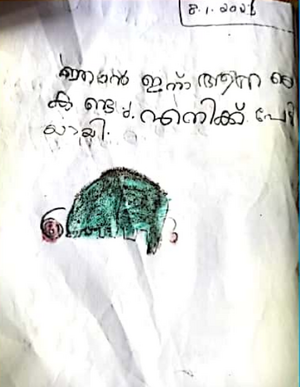 8.1.2021
ഞാൻ ഇന്ന് ആന യെ
കണ്ടു. എനിക്ക് പേടി
യായി.